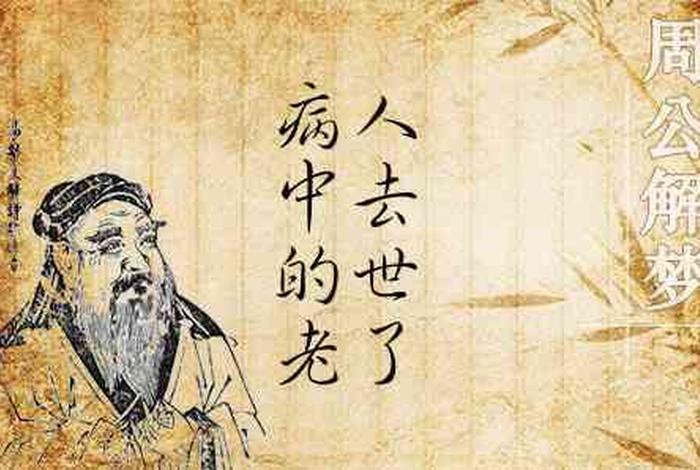 周公解梦
病中的老
人去世了